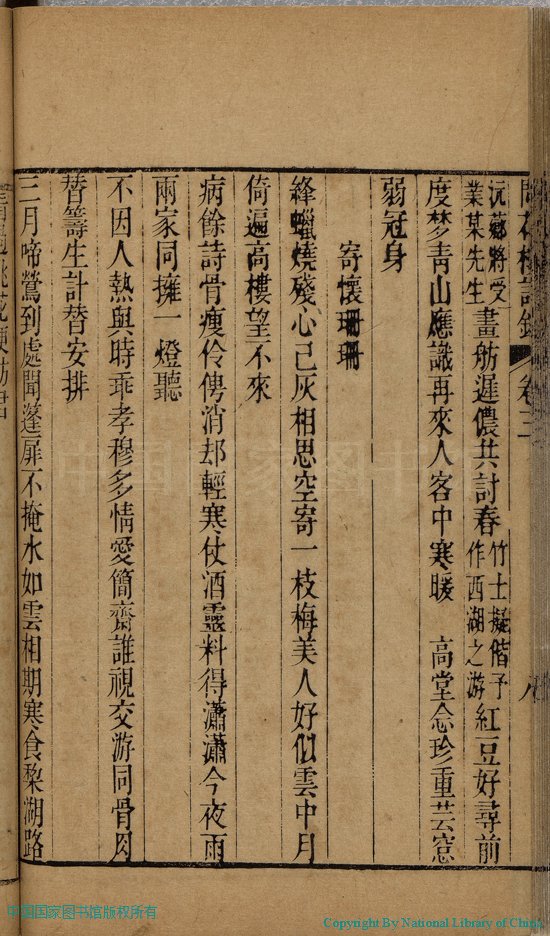 卷三
八
沅薌將受
業某先生
畫舫遲儂共討春
竹士擬偕予
作西湖之游
紅豆好尋前
度梦青山應識再來人客中寒暖　高堂念珍重芸窓
弱冠身
寄懷珊珊
絳蠟燒殘心己灰相思空寄一枝梅美人好似雲中月
倚遍高樓望不來
病餘詩骨瘦伶俜消却輕寒仗酒靈料得瀟瀟今夜雨
兩家同擁一燈聽
不因人熱與時乖孝穆多情愛簡齋誰視交游同骨肉
替籌生計替安排
三月啼鶯到處聞蓬扉不掩水如雲相期寒食棃湖路
中国国家图书馆版权所有
Copyright By National Library of China